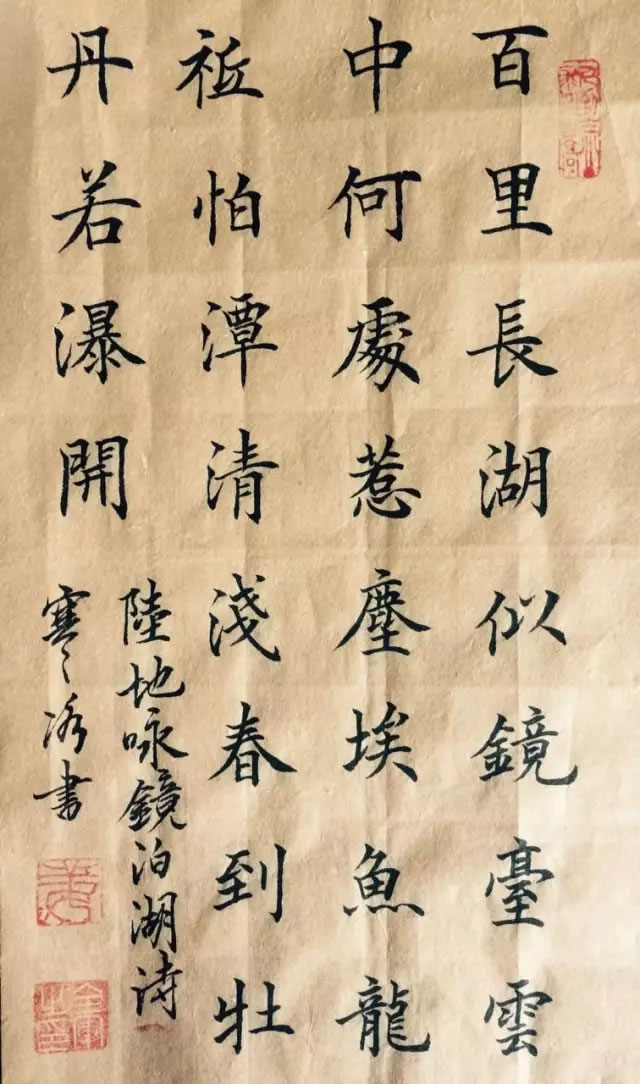 百里長湖似鏡臺雲
中何處惹塵埃魚龍
祗怕潭清淺春到牡
丹若瀑開
陸地咏鏡泊湖詩
寒〻冰書